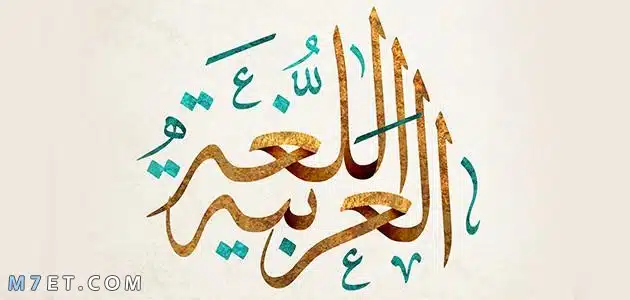 اللغة
العربية
M7ET.COM